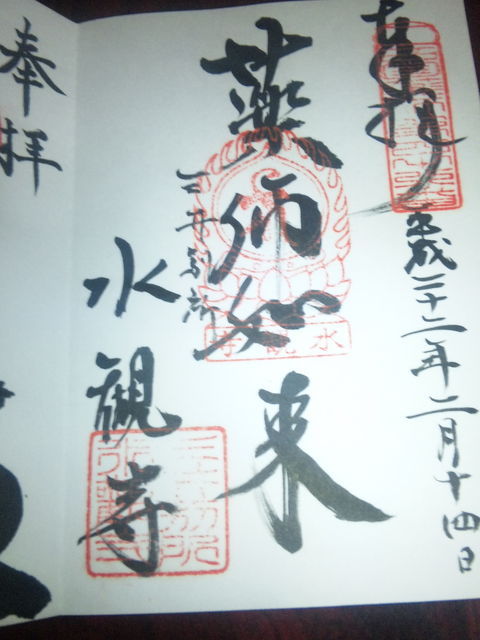 奉拝
平成二十二年二月十四日
薬師如来
水観寺
三井別所
水観寺
奉拝